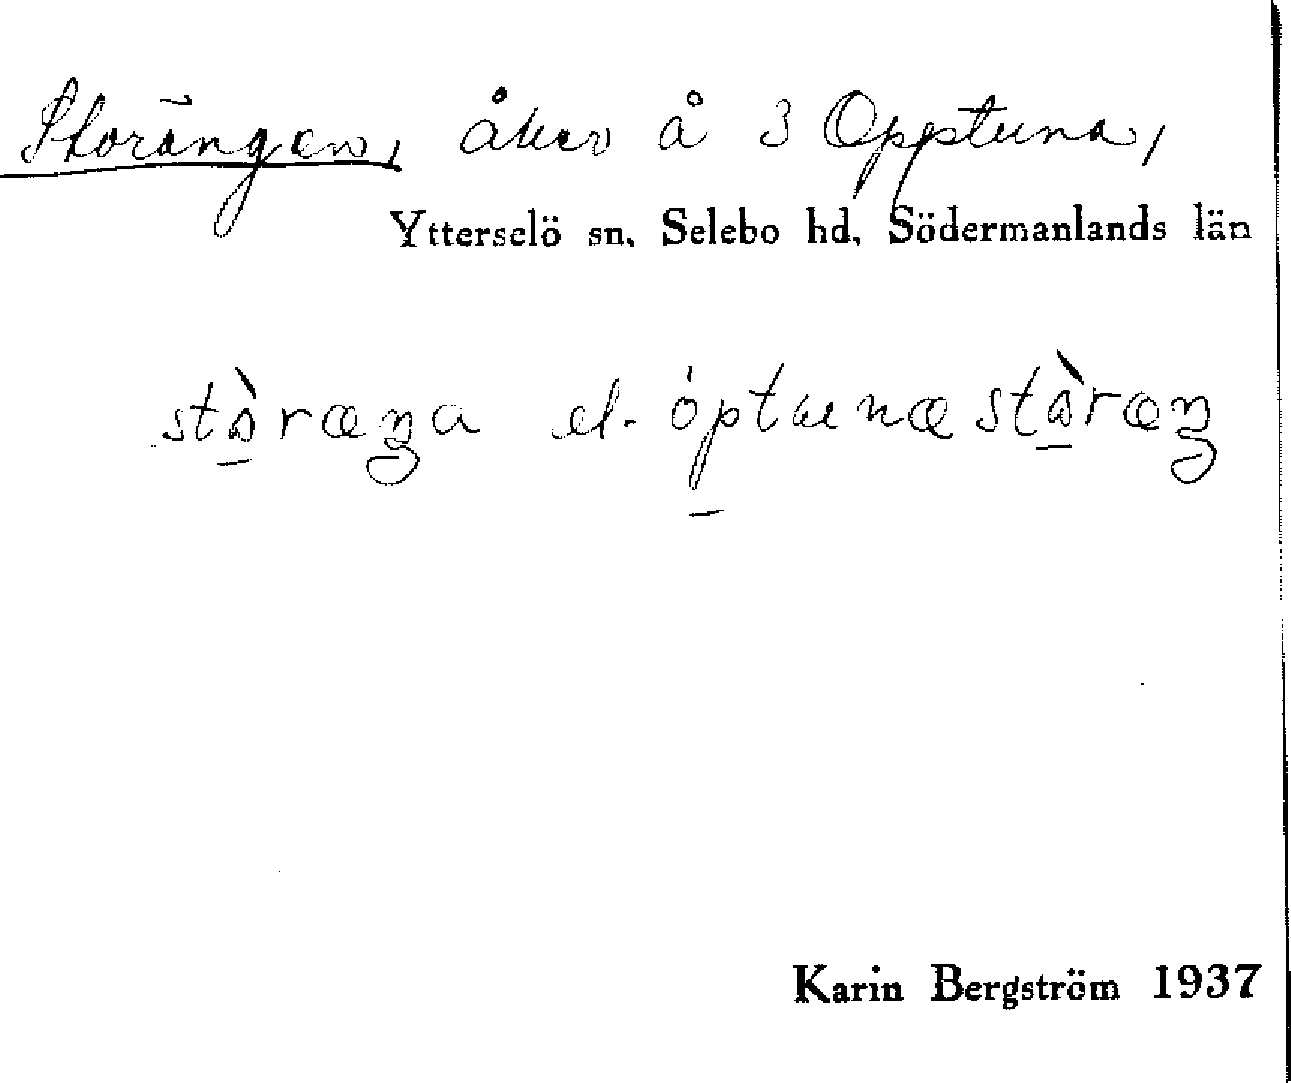 Storängen, åker å 3 Opptuna,
Ytterselö sn, Selebo hd, Södermanlands län
stòræŋa el. óptunæstòræŋ
Karin Bergström 1937